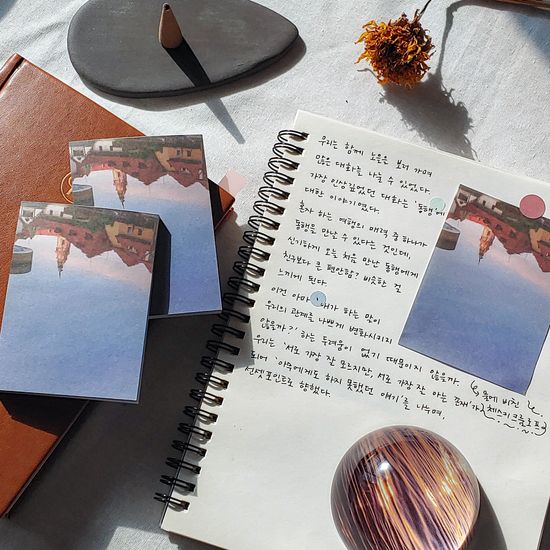 우리는 함께 노을을 보러 가며
많은 대화를 나눌 수 있었다.
가장 인상깊었던 대화는 '동행'에
대한 이야기였다.
혼자 하는 여행의 매력 중 하나가
동행을 만날 수 있다는 것인데,
신기하게 오늘 처음 만난 동행에게
친구보다 큰 편안함? 비슷한 걸
느끼게 된다
이건 아마 '내가 하는 말이
우리의 관계를 나쁘게 변화시키지
않을까?' 하는 두려움이 없기 때문이지 않을까.
우리는 '서로 가장 잘 모르지만, 서로 가장 잘 아는 존재'가
되어 '아무에게도 하지 못했던 얘기'를 나누며,
선셋 포인트로 향했다.
물에 비친
체스키크룸로프